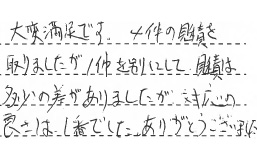 大変満足です。4件の見積を
取りましたが1件を別にして見積は
多少の差がありましたが 対応の
良さは1番でした。ありがとうございました